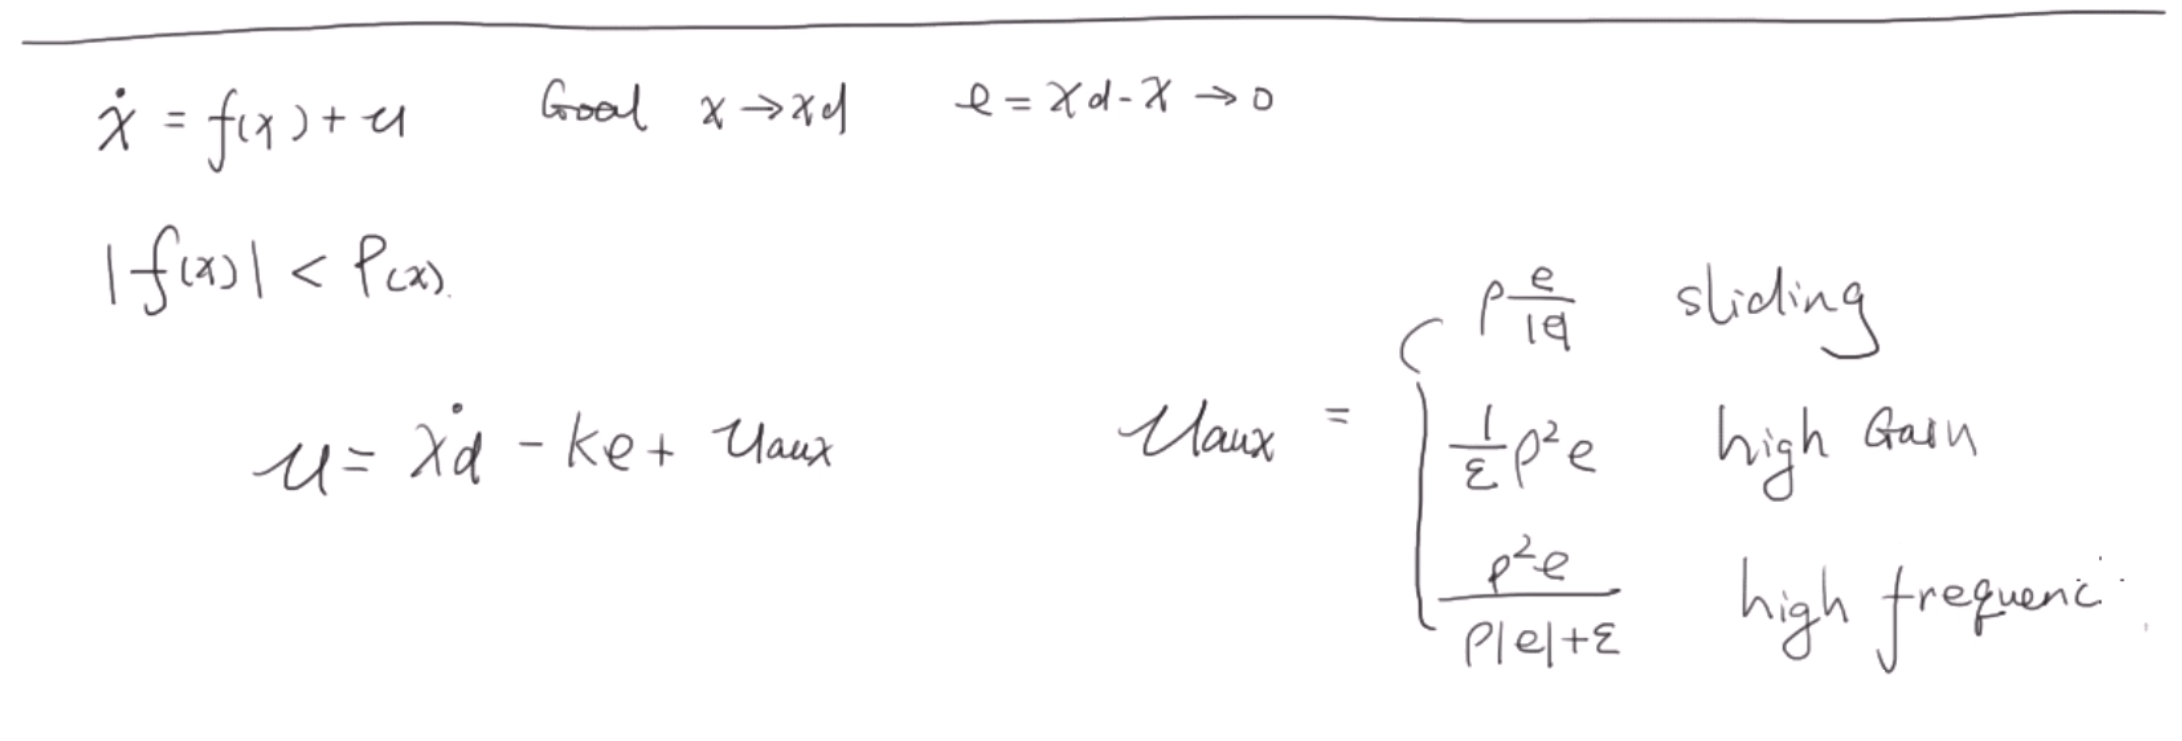 ẋ = f(x) + u Goal x → xd e = xd - x → 0
|f(x)| < ρ(x).
u = ẋd - ke + uaux
uaux = { ρ e/|e| sliding
1/ε ρ²e high Gain
ρ²e / ρ|e|+ε high frequenc